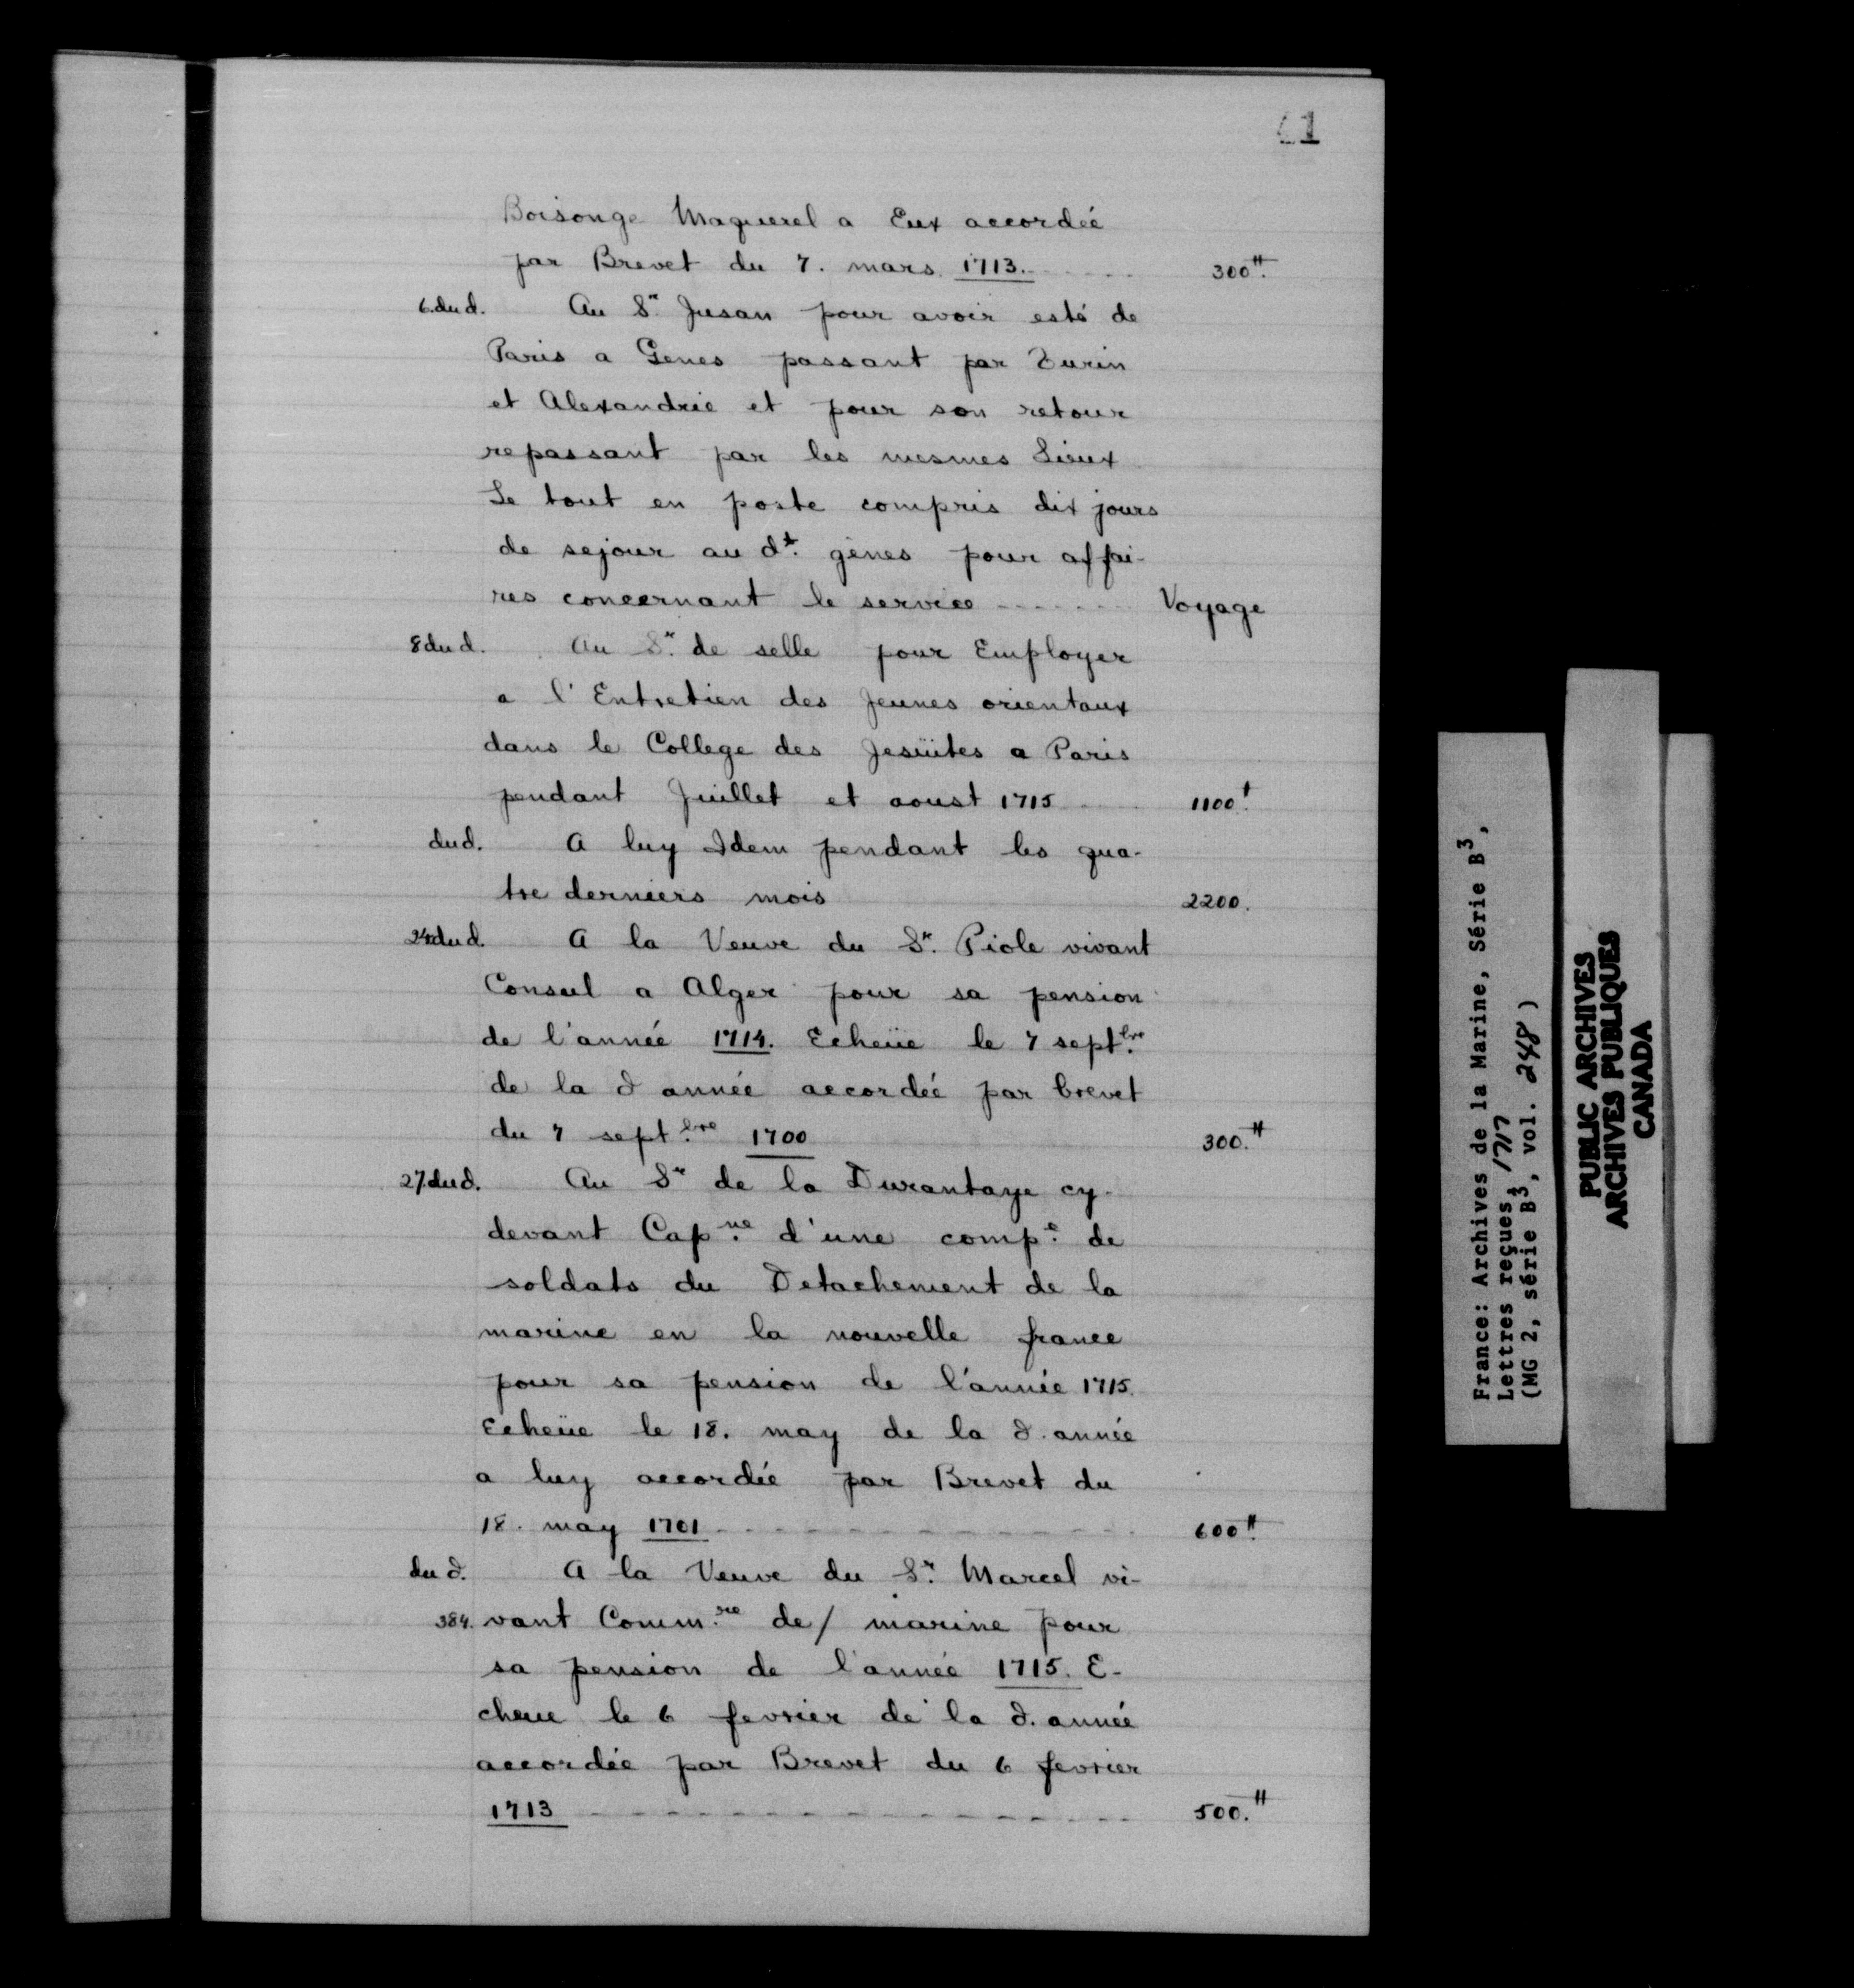 41
Boisonge Maquerel a Eux accordée
par Brevet du 7. mars 1713. 300 ₶.
6. du d. Au Sr. Jusan pour avoir esté de
Paris a Genes passant par Turin
et Alexandrie et pour son retour
repassant par les mesmes Lieux
Le tout en poste compris dix jours
de sejour au dt. gènes pour affai-
res concernant le service ------- Voyage
8 du d. Au Sr. de selle pour Employer
a l'Entretien des Jeunes orientaux
dans le College des Jesüites a Paris
pendant Juillet et aoust 1715 1100 ₶.
dud. A luy Idem pendant les qua-
tre derniers mois 2200.
24 du d. A la Veuve du Sr. Piole vivant
Consul a Alger pour sa pension
de l'année 1714. Echeüe le 7 septbre.
de la d année accordée par brevet
du 7 septbre. 1700 300. ₶
27. du d. Au Sr de la Durantaye cy-
devant Capne. d'une compe. de
soldats du Detachement de la
marine en la nouvelle france
pour sa pension de l'année 1715.
Echeüe le 18. may de la d. année
a luy accordée par Brevet du
18. may 1701 ------- 600 ₶.
du d. A la Veuve du Sr. Marcel vi-
384. vant Commre. de/ marine pour
sa pension de l'année 1715. E-
cheue le 6 fevrier de la d. année
accordée par Brevet du 6 fevrier
1713 ------- 500. ₶
France: Archives de la Marine, Série B3,
Lettres reçues, 1717
(MG 2, série B3, vol. 248)
PUBLIC ARCHIVES
ARCHIVES PUBLIQUES
CANADA